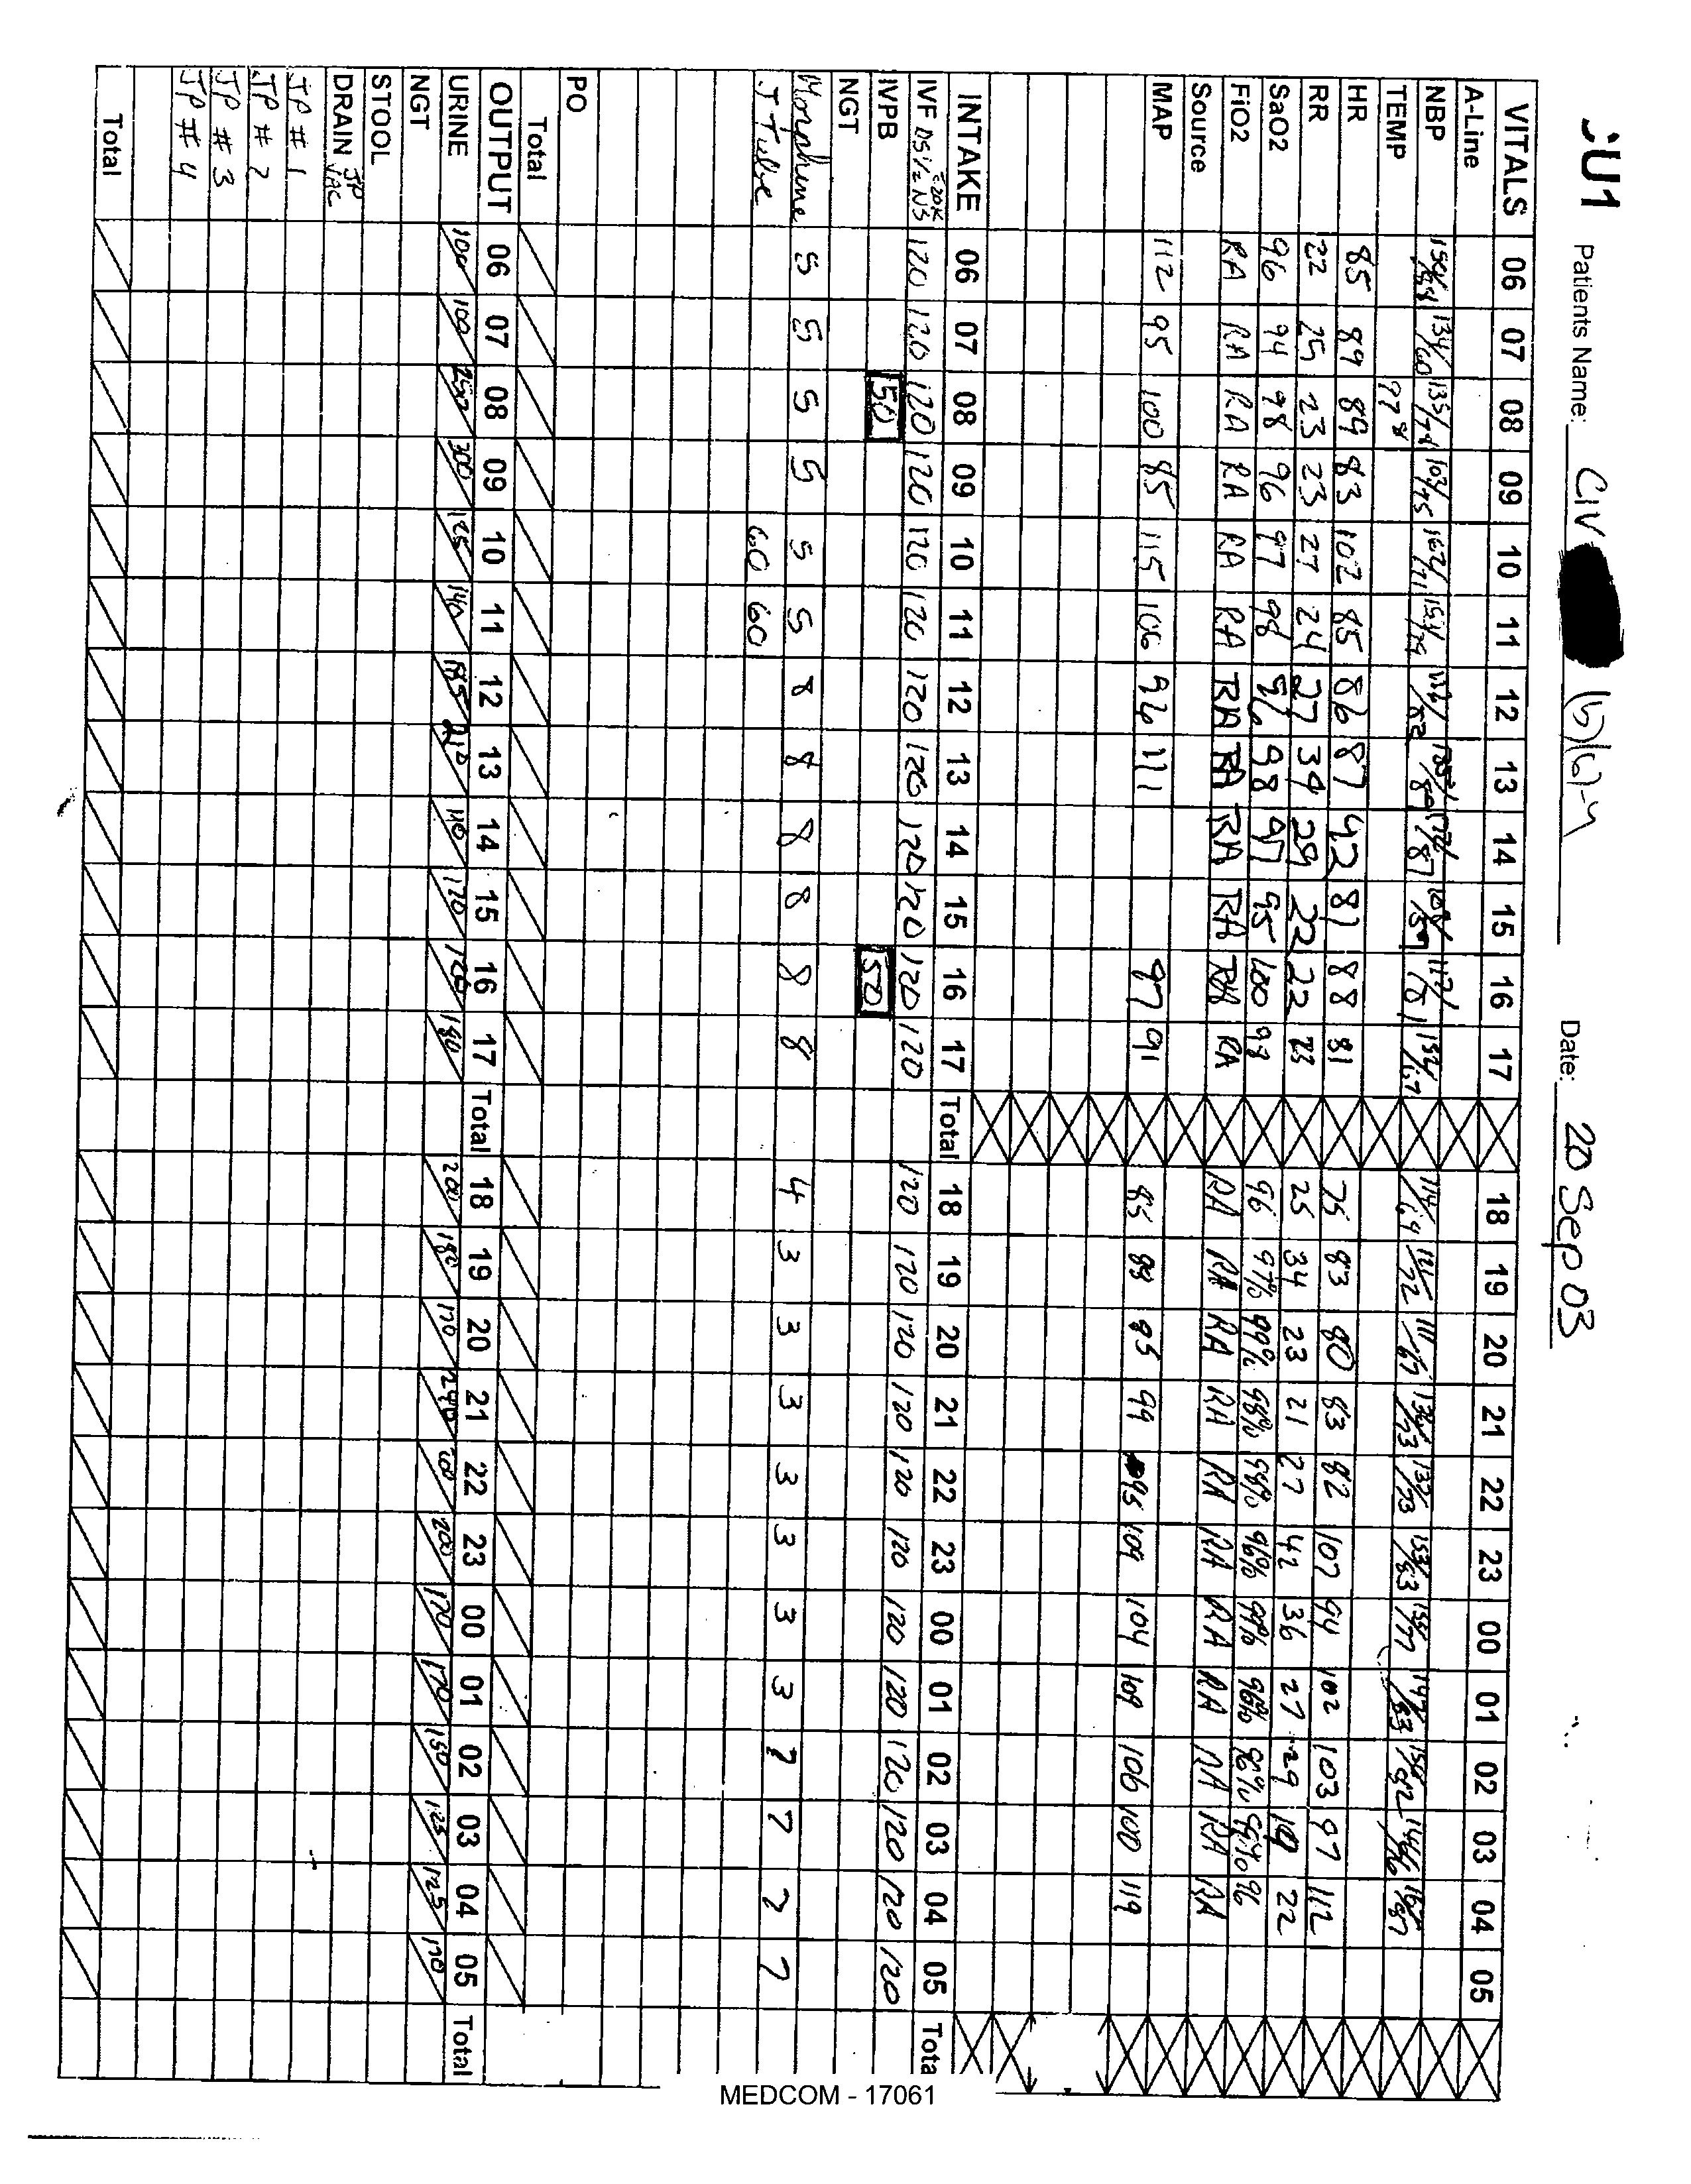 CU1 Patients Name: CIV (b)(6)-4 Date: 20 Sep 03
VITALS 06 07 08 09 10 11 12 13 14 15 16 17 18 19 20 21 22 23 00 01 02 03 04 05
A-Line
NBP 150/ 134/60 135/78 103/75 162/ 154/ 112/52 /89 /87 /59 117/ 132/67 114/64 121/72 111/67 /73 133/73 153/83 /77 147/83 /92 144/ /87
TEMP 97 8
HR 85 89 89 83 102 85 86 87 42 81 88 81 75 83 80 83 82 107 94 102 103 97 112
RR 22 25 23 23 27 24 27 34 29 22 22 23 25 34 23 21 27 42 36 27 29 19 22
SaO2 96 94 98 96 97 98 96 98 97 95 100 98 96 97% 99% 98% 98% 96% 99% 96% 96% 96
FiO2 RA RA RA RA RA RA RA RA RA RA RA RA RA RA RA RA RA RA RA RA RA RA RA
Source
MAP 112 95 100 85 115 106 96 111 97 91 85 88 95 99 95 109 104 109 106 100 119
INTAKE 06 07 08 09 10 11 12 13 14 15 16 17 Total 18 19 20 21 22 23 00 01 02 03 04 05 Tota
IVF D5 1/2 NS c 20K 120 120 120 120 120 120 120 120 120 120 120 120 120 120 120 120 120 120 120 120 120 120 120 120
IVPB 50 50
NGT
Morphine 5 5 5 5 5 5 8 8 8 8 8 8 4 3 3 3 3 3 3 3 7 7 7 7
J Tube 60 60
PO
Total
OUTPUT 06 07 08 09 10 11 12 13 14 15 16 17 Total 18 19 20 21 22 23 00 01 02 03 04 05 Total
URINE 100 100 250 300 125 140 185 210 110 170 120 180 200 180 170 240 200 200 170 170 150 125 125 170
NGT
STOOL
DRAIN JP VAC
JP # 1
JP # 2
JP # 3
JP # 4
Total
MEDCOM - 17061